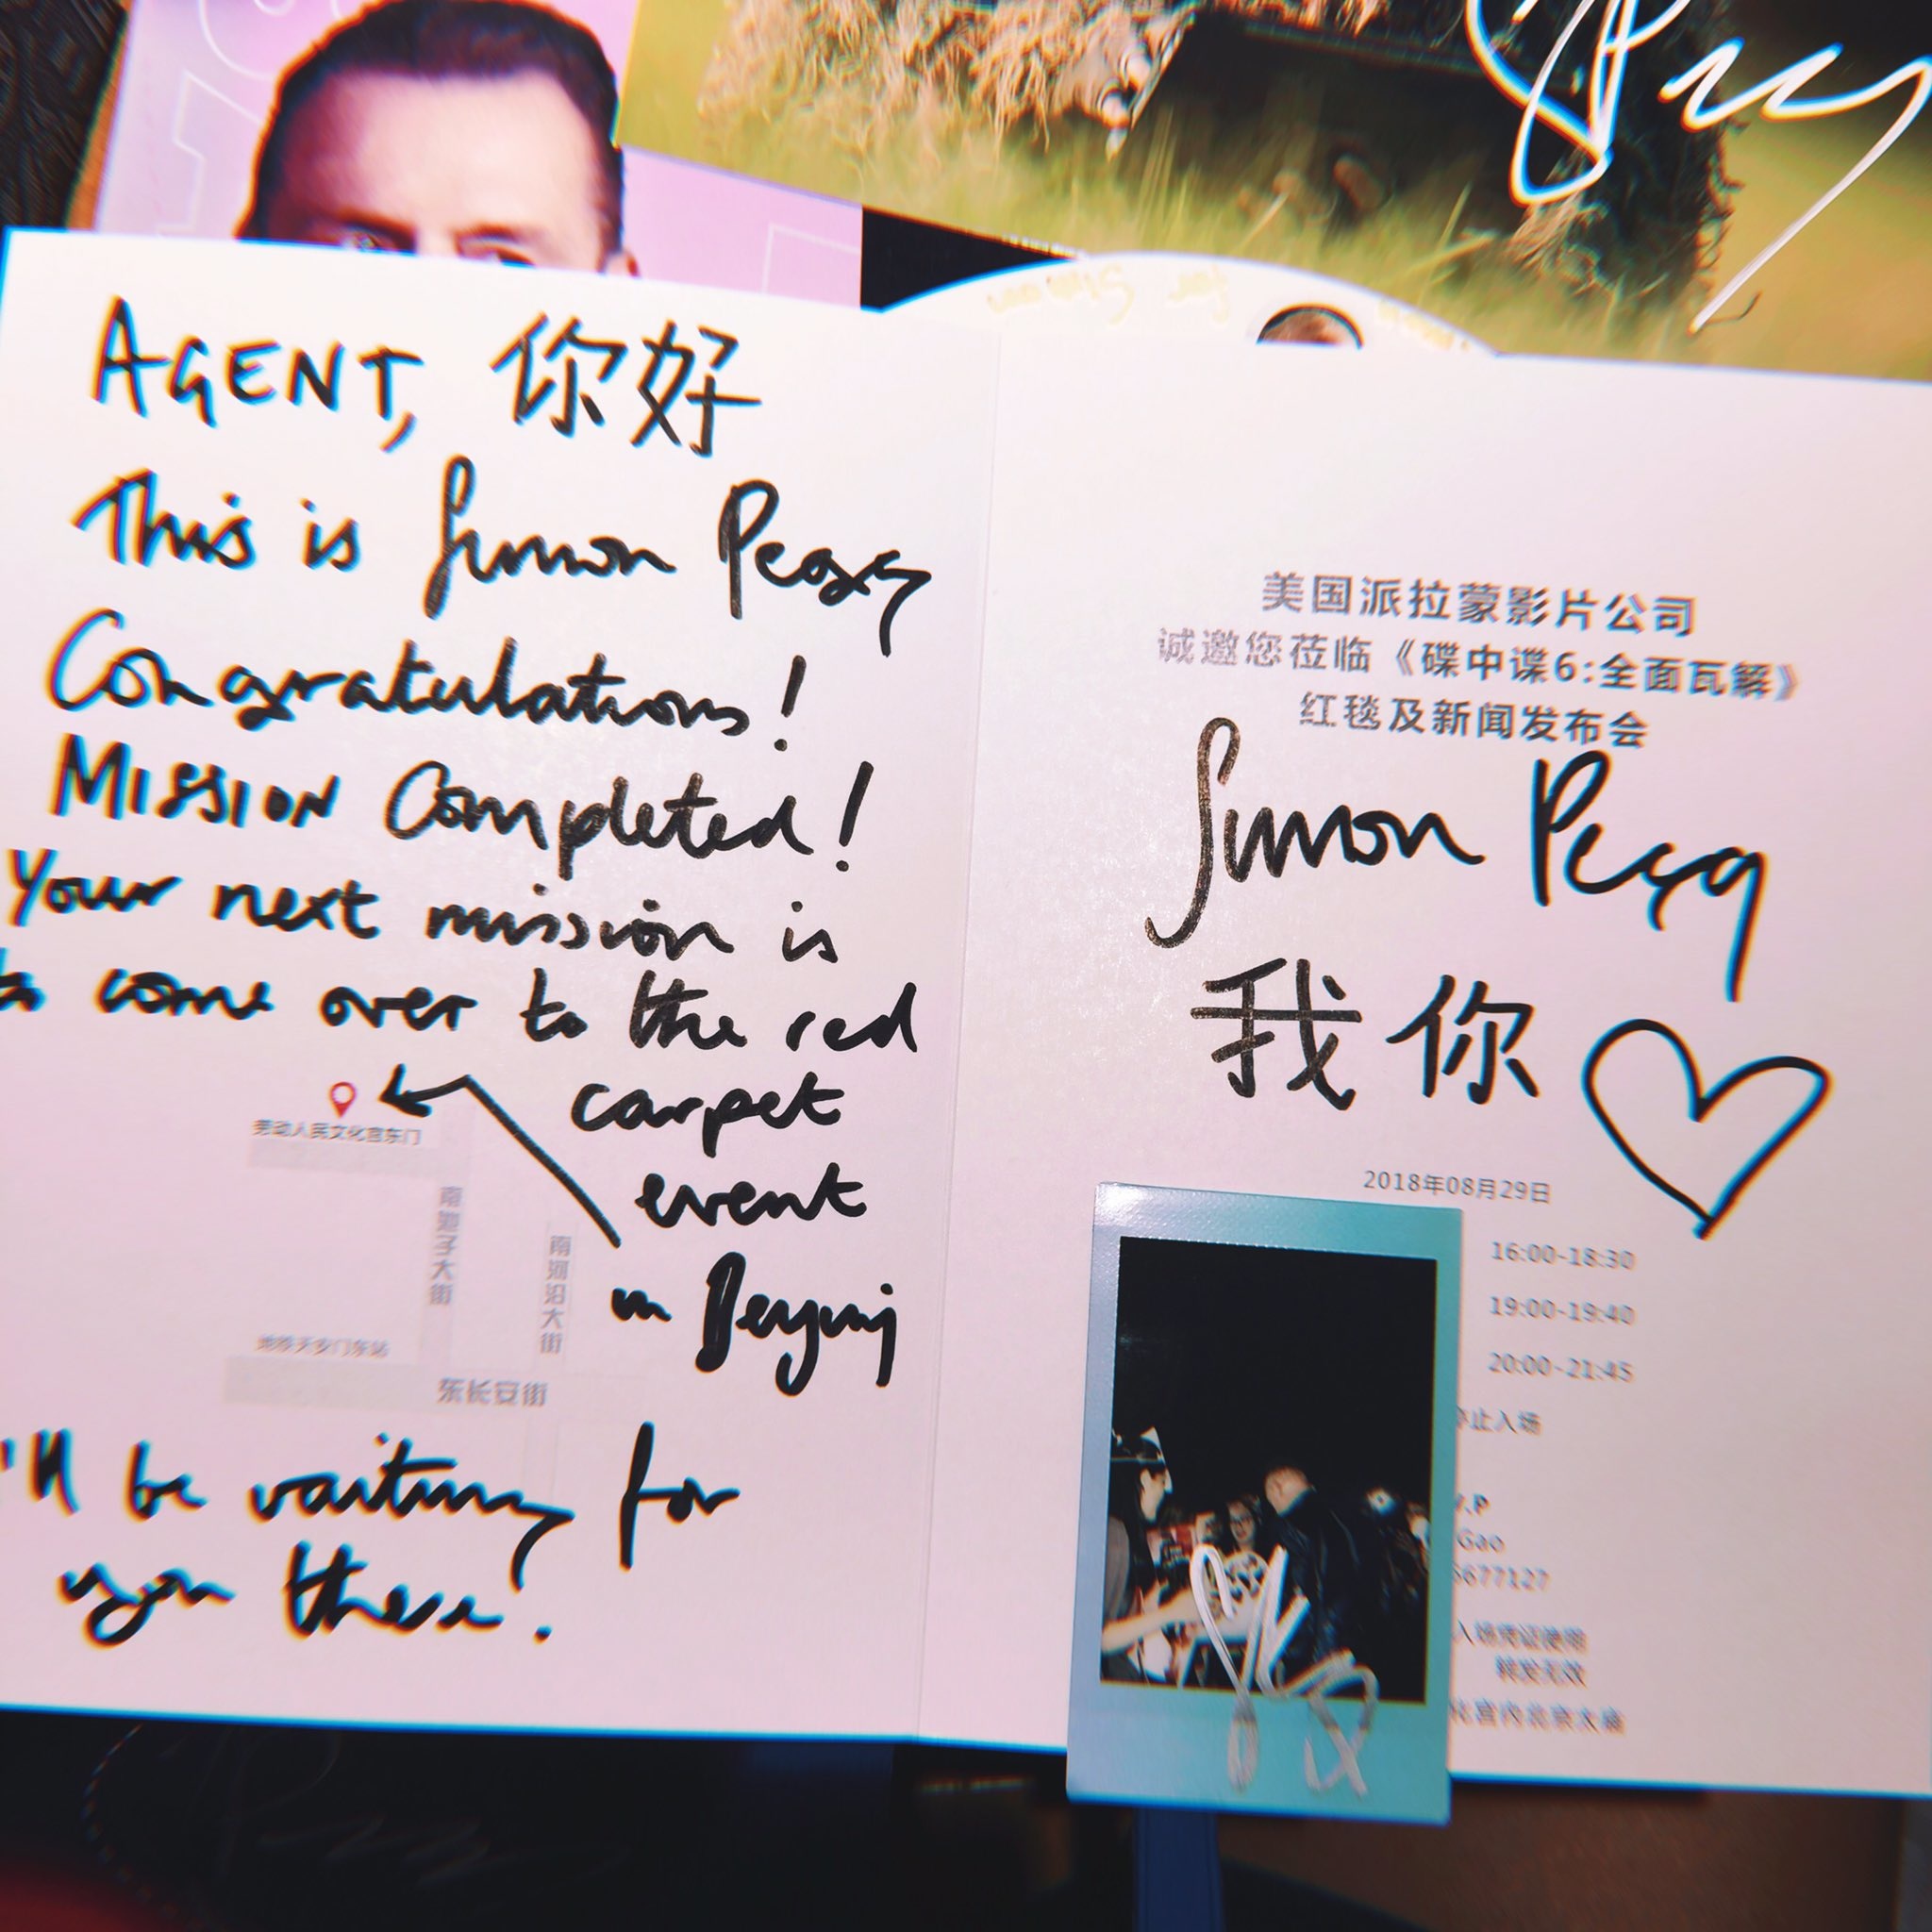 Pegg
AGENT, 你好
This is Simon Pegg
Congratulations!
MISSION Completed!
Your next mission is
to come over to the red
carpet
event
in Beijing
劳动人民文化宫东门
南池子大街
南河沿大街
地铁天安门东站
东长安街
I'll be waiting for
you there!
美国派拉蒙影片公司
诚邀您莅临《碟中谍6:全面瓦解》
红毯及新闻发布会
Simon Pegg
我你
2018年08月29日
16:00-18:30
19:00-19:40
20:00-21:45
停止入场
V.P
Gao
6677127
入场凭证使用
转发无效